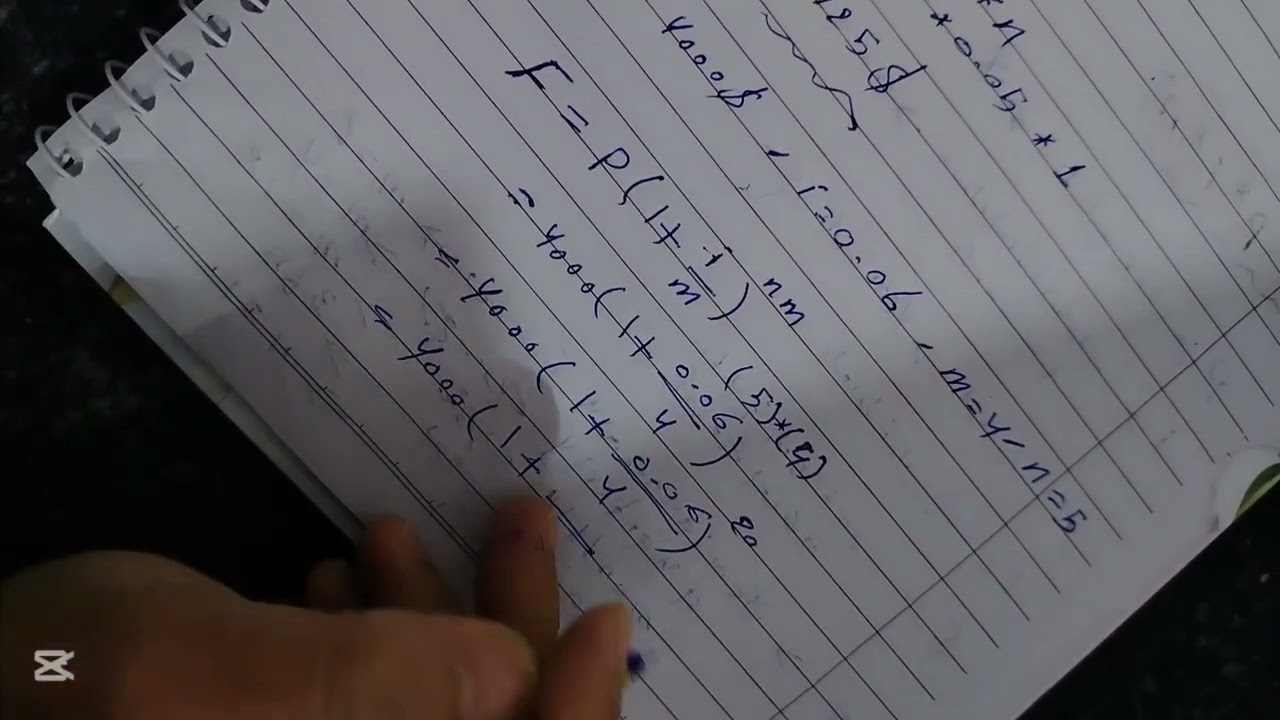 *n
*0.05 * 1
125$
4000$, i=0.06, m=4, n=5
F = P(1+i/m)^nm
= 4000(1+0.06/4)^(5)*(4)
= 4000(1+0.06/4)^20
= 4000(1+